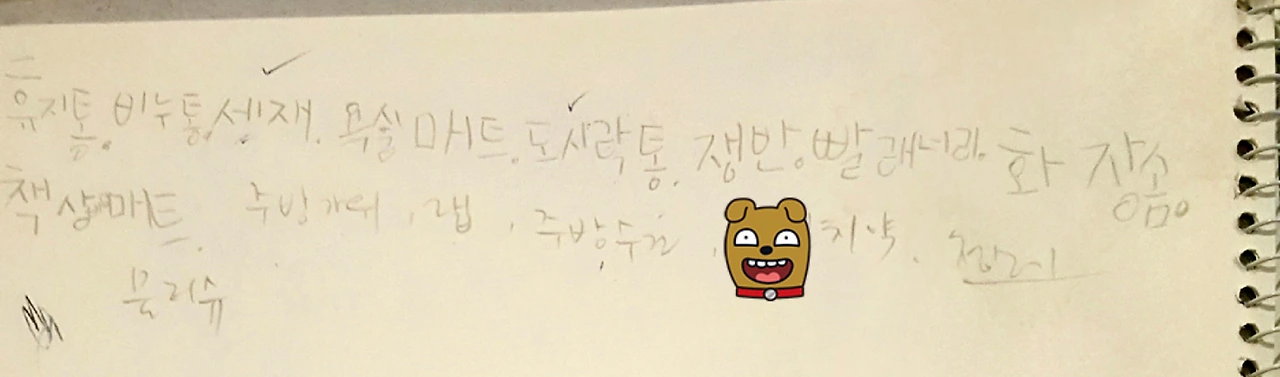 휴지통, 비누통, 세재, 욕실매트, 도시락통, 쟁반, 빨래너리, 화장솜,
책상매트, 주방가위, 랩, 주방수건, 치약, 청소
물티슈